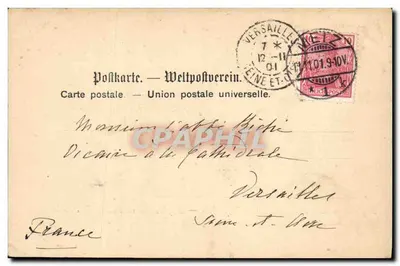 VERSAILLES
7 *
12 -11
01
SEINE ET-OISE
METZ
11.11.01.9-10V.
* 1 k
Postkarte. — Weltpostverein.
Carte postale. — Union postale universelle.
Monsieur l'abbé
Vicaire à la Cathédrale
Versailles
Seine-et-Oise
France
PRINTCOLLECTION